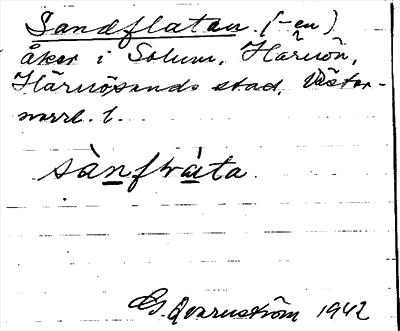 Sandflatan. (-en)
åker i Solum, Härnön,
Härnösands stad, Väster-
norrl. l.
sànfwàta.
G. Qvarnström 1942